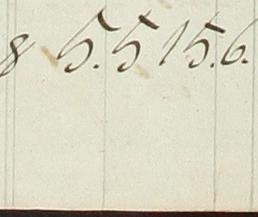 8 5.5 15.6.